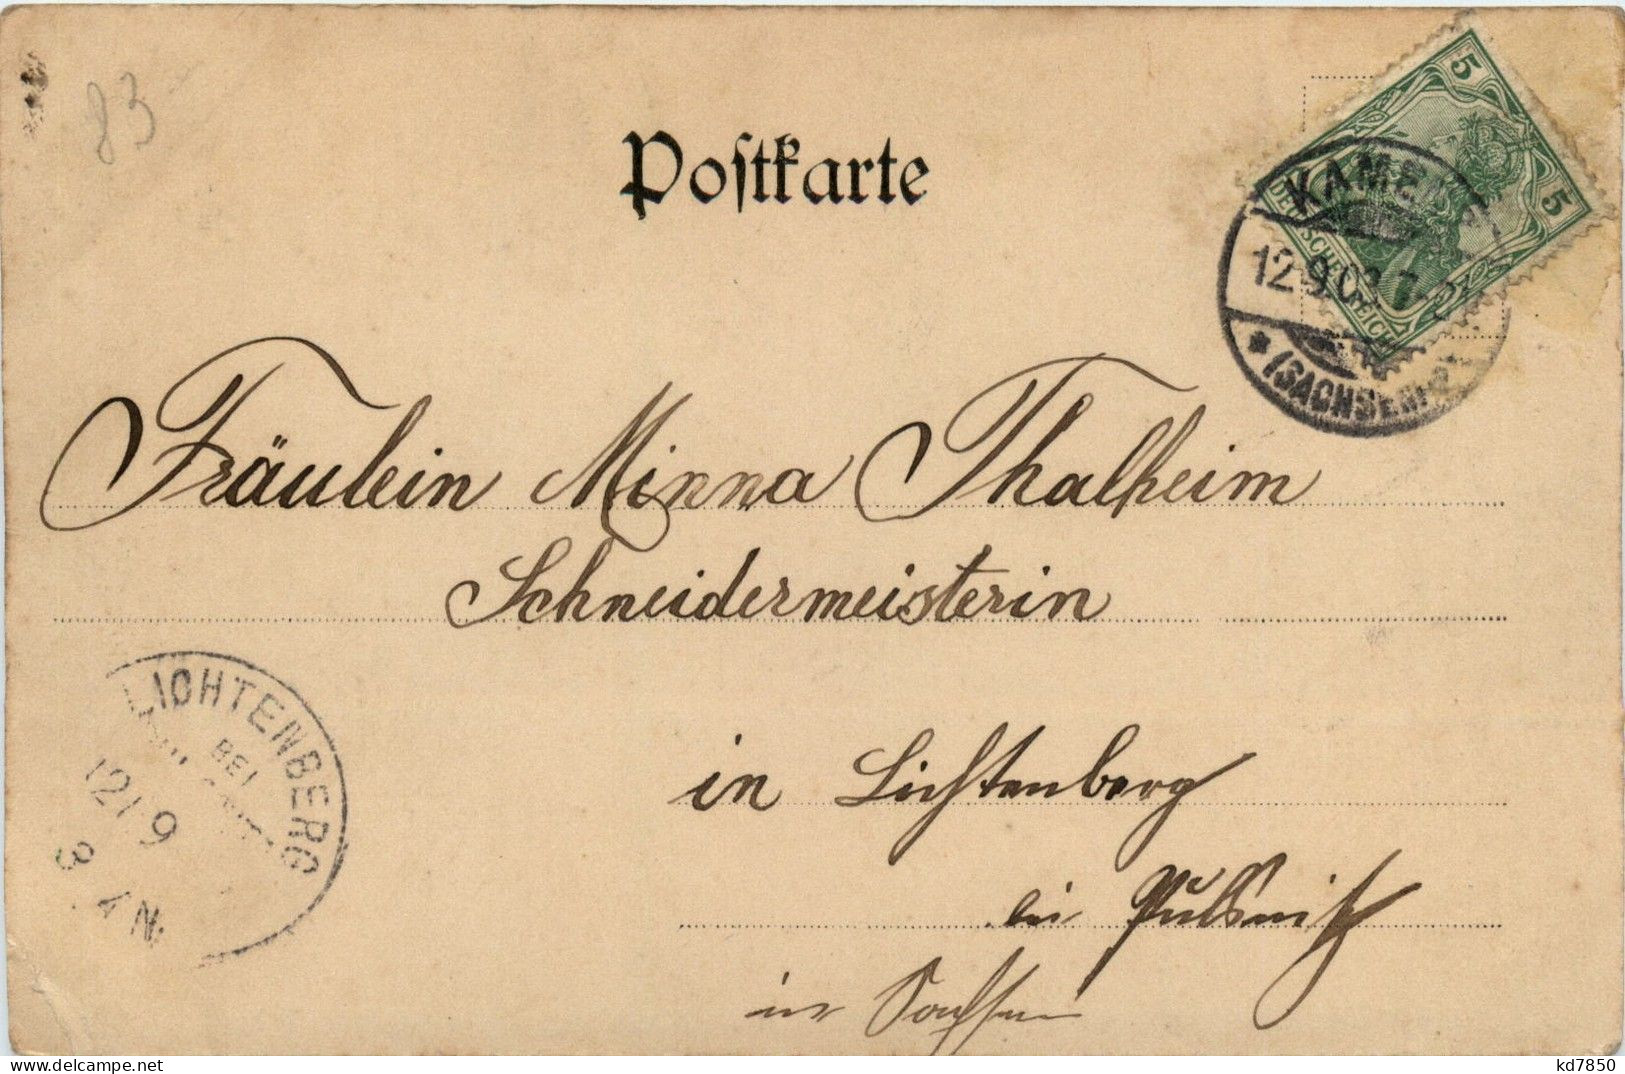 83
Postkarte
5
5
DEUTSCHES REICH
KAMENZ
12.9.03.7-
* (SACHSEN)
Fräulein Minna Thalheim
Schneidermeisterin
in Lichtenberg
bei Pulsnitz
in Sachsen
LICHTENBERG
BEI
12/9
N
kd7850